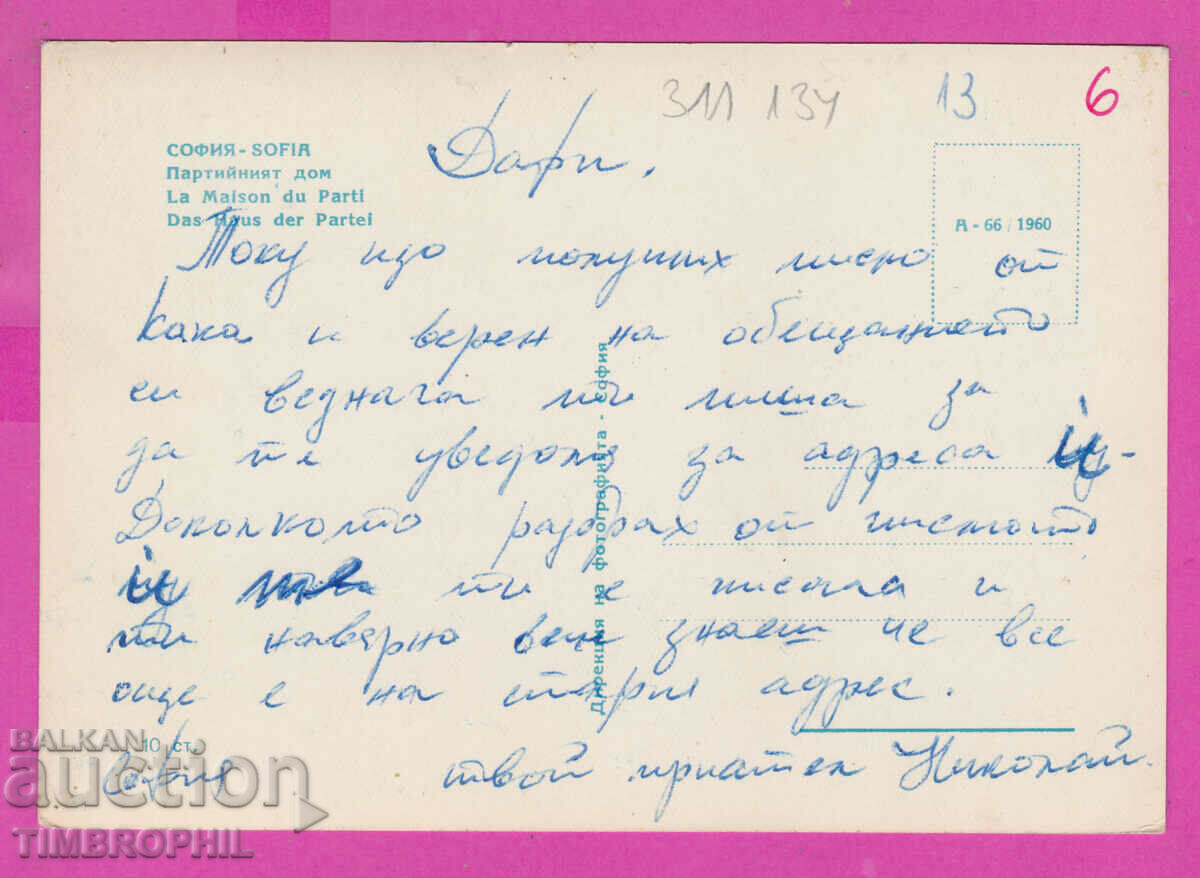 311 134 13 6
СОФИЯ - SOFIA
Партийният дом
La Maison du Parti
Das Haus der Partei
А - 66 / 1960
Дафи,
Току що получих писмо от
Кака и верен на обещанието
си веднага ти пиша за
да те уведомя за адреса ѝ-
Доколкото разбрах от писмото
ѝ ти е писала и
ти наверно вече знаеш че все
още е на стария адрес.
София твой приятел Николай.
10 ст.
Дирекция на фотографията - София
BALKAN
auction
TIMBROPHIL